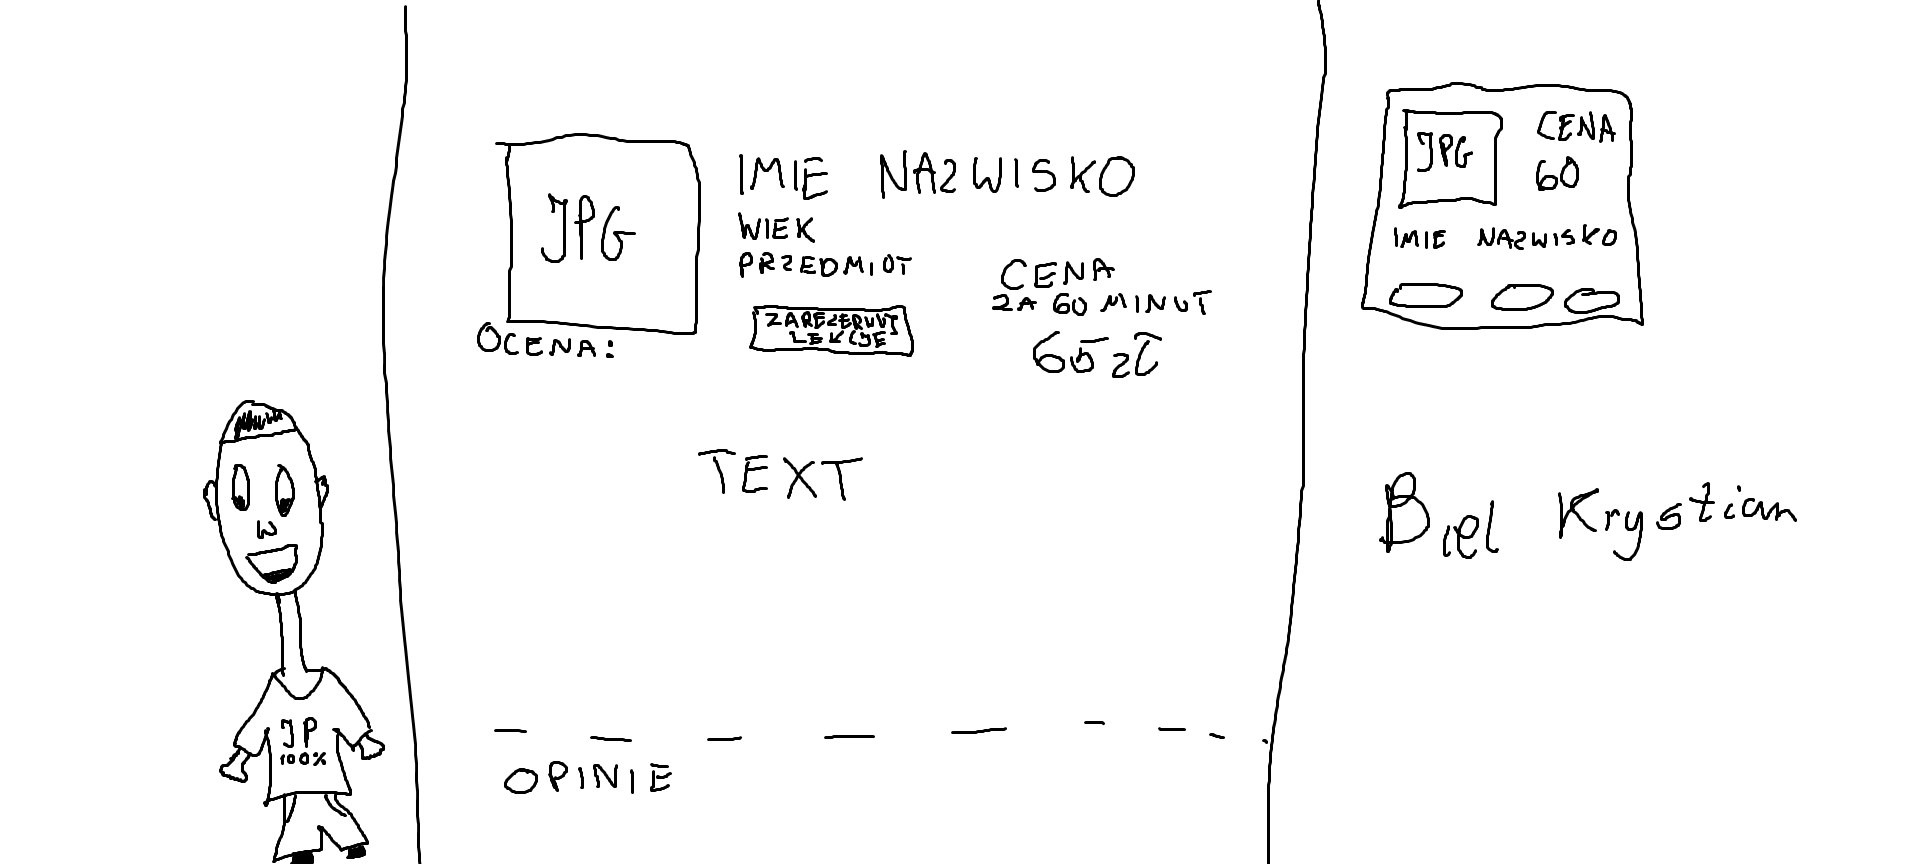 JPG
IMIE NAZWISKO
WIEK
PRZEDMIOT
ZAREZERWUJ
LEKCJE
CENA
ZA 60 MINUT
65 zł
OCENA:
TEXT
OPINIE
JP
100%
JPG
CENA
60
IMIE NAZWISKO
Biel Krystian